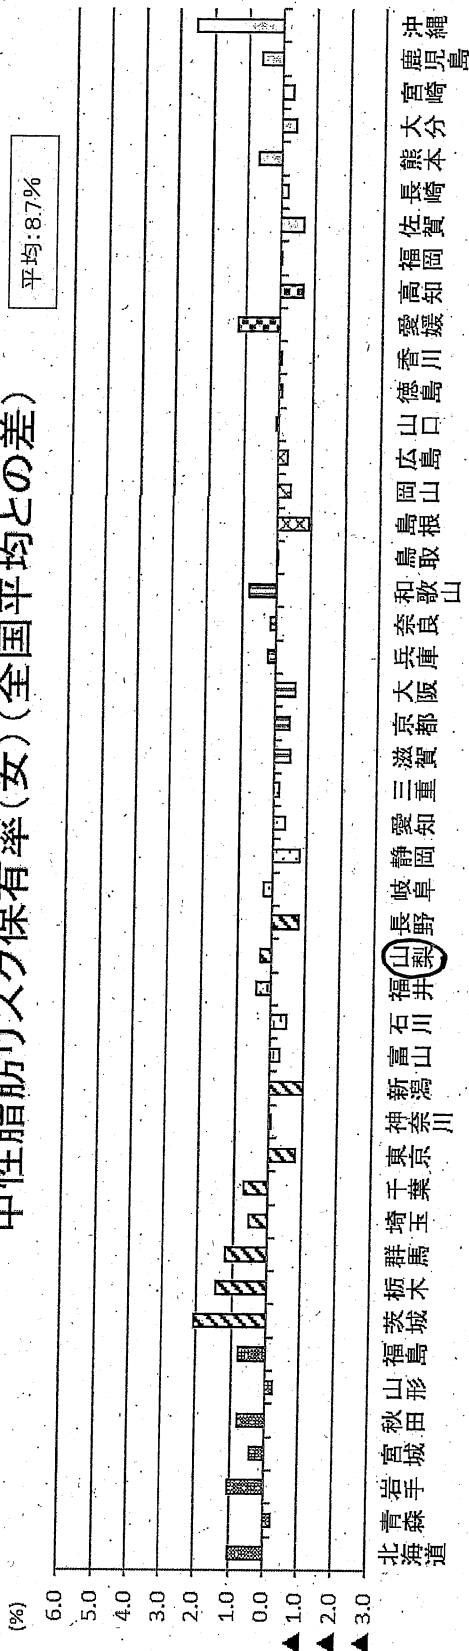 中性脂肪リスク保有率(女)(全国平均との差)
平均:8.7%
(%)
6.0
5.0
4.0
3.0
2.0
1.0
0.0
▲1.0
▲2.0
▲3.0
北海道
青森
岩手
宮城
秋田
山形
福島
茨城
栃木
群馬
埼玉
千葉
東京
神奈川
新潟
富山
石川
福井
山梨
長野
岐阜
静岡
愛知
三重
滋賀
京都
大阪
兵庫
奈良
和歌山
鳥取
島根
岡山
広島
山口
徳島
香川
愛媛
高知
福岡
佐賀
長崎
熊本
大分
宮崎
鹿児島
沖縄